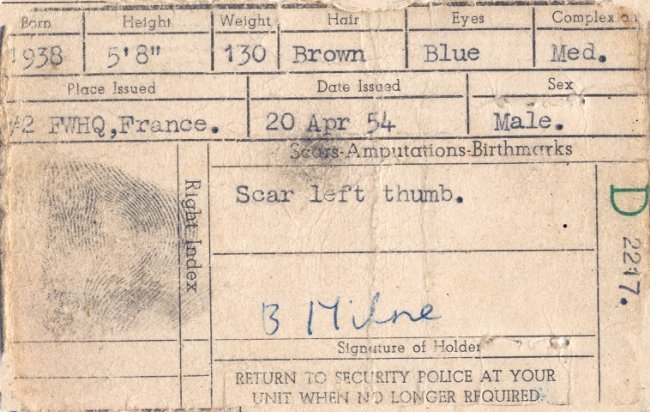 Born Height Weight Hair Eyes Complexion
1938 5'8" 130 Brown Blue Med.
Place Issued Date Issued Sex
#2 FWHQ,France. 20 Apr 54 Male.
Scars-Amputations-Birthmarks
Right Index
Scar left thumb.
D 2217.
B Milne
Signature of Holder
RETURN TO SECURITY POLICE AT YOUR
UNIT WHEN NO LONGER REQUIRED.